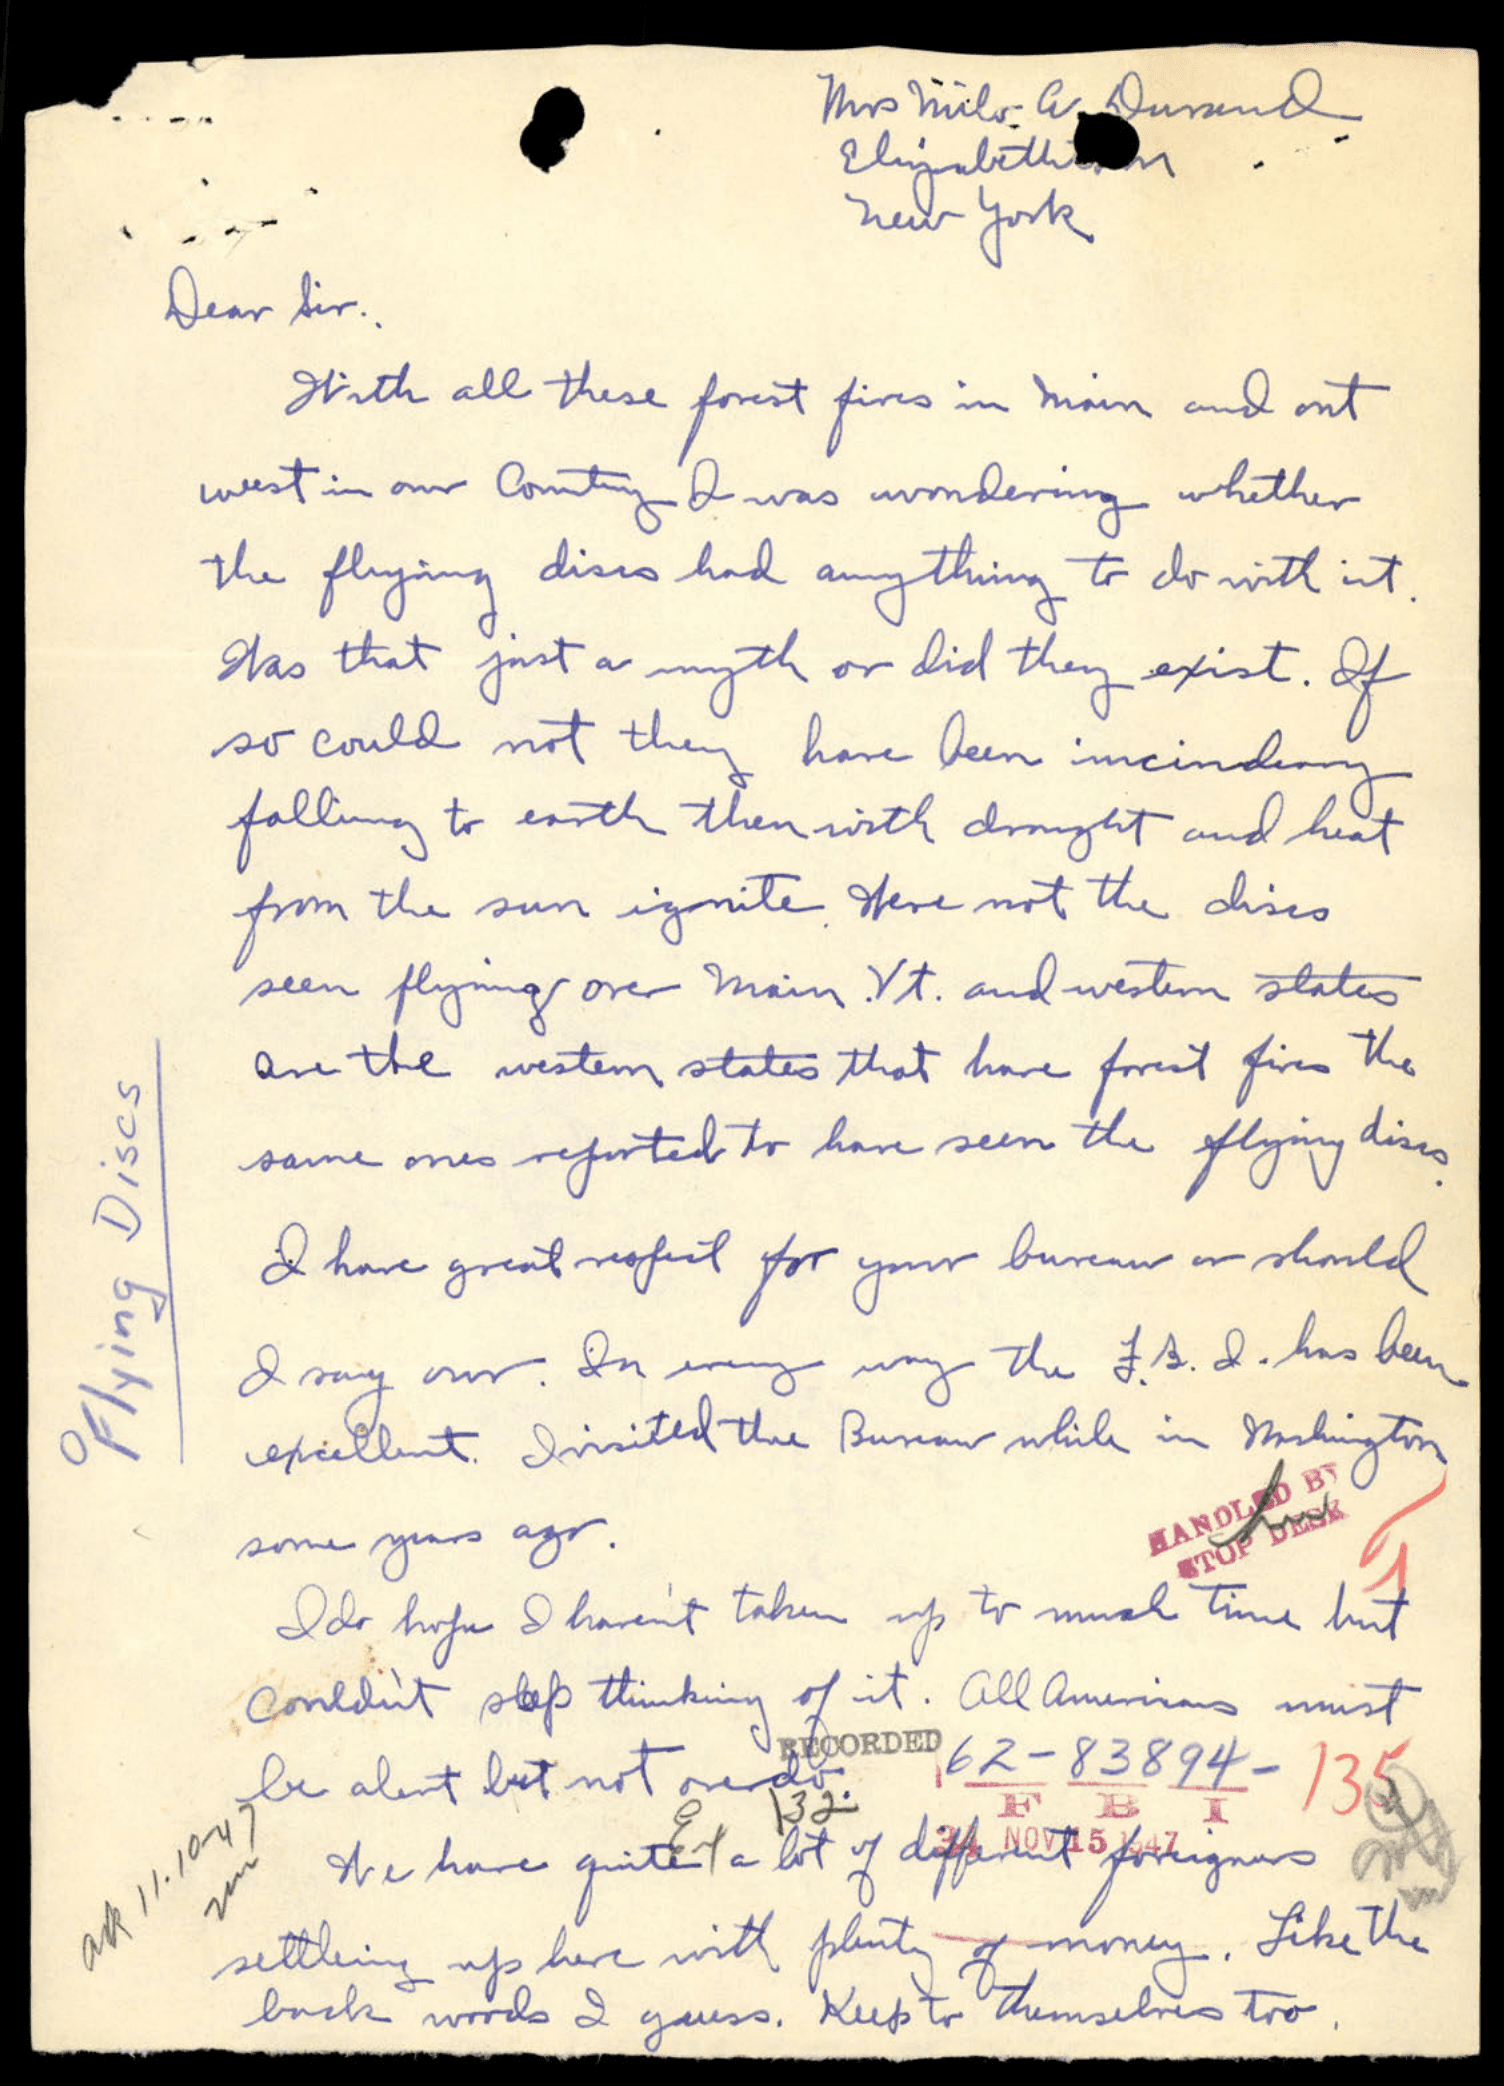 Mrs Milo A. Durand
Elizabethtown
New York
Dear Sir.
With all these forest fires in Main and out
west in our Country I was wondering whether
the flying discs had anything to do with it.
Was that just a myth or did they exist. If
so could not they have been incindeary
falling to earth then with drought and heat
from the sun ignite. Were not the discs
seen flying over Main. Vt. and western states
are the western states that have forest fires the
same ones reported to have seen the flying discs.
I have great respect for your bureau or should
I say our. In every way the F.B.I. has been
excellent. I visited the Bureau while in Washington
some years ago.
I do hope I haven't taken up to much time but
couldn't stop thinking of it. All Americans must
be alert but not overdo.
We have quite a lot of different foreigners
settleing up here with plenty of money. Like the
back woods I guess. Keep to themselves too.
Flying Discs
HANDLED BY
STOP DESK
RECORDED
62-83894-135
FBI
34 NOV 15 1947
132
ack 11-10-47